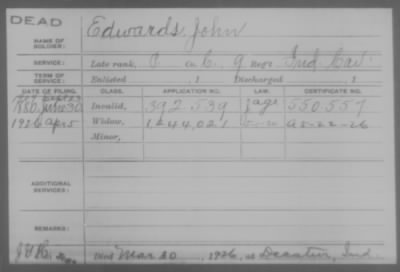 DEAD
NAME OF SOLDIER: Edwards, John
SERVICE: Late rank, P Co. C, 9 mos Ind Cav.
TERM OF SERVICE: Enlisted , 1 Discharged , 1
DATE OF FILING. CLASS. APPLICATION NO. LAW. CERTIFICATE NO.
1880 June 30 Invalid, 392.539 550.557
1926 Apr 5 Widow, 1,244,021 A5-22-26
Minor,
ADDITIONAL SERVICES:
REMARKS:
Died Mar 20, 1926, at Decatur, Ind.